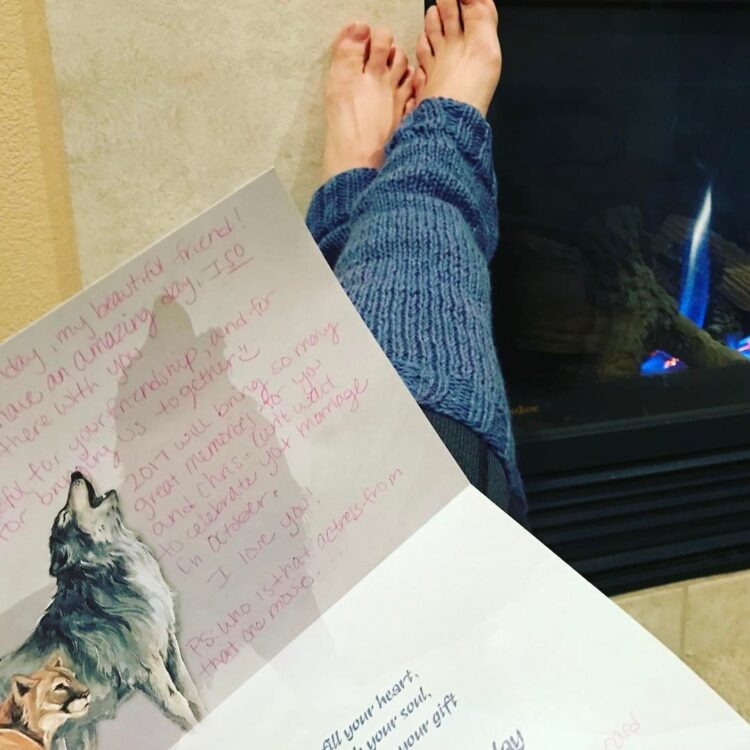 day, my beautiful friend!
have an amazing day, I SO
there with you
ful for your friendship, and for
for bringing us together :)
2017 will bring so many
great memories for you
and Chris. Can't wait
to celebrate your marriage
in October.
I love you!
PS: who is that actress from
that one movie.....
fill your heart,
your soul,
your gift
day